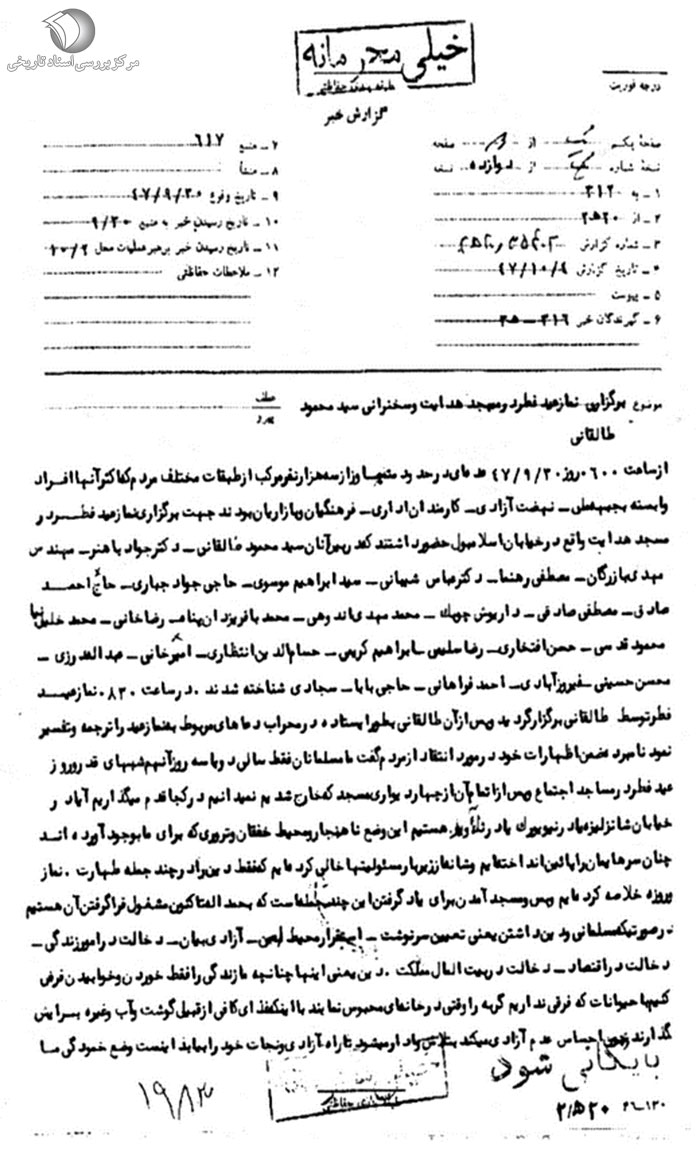 مرکز بررسی اسناد تاریخی
خیلی محرمانه
طبقه‌بندی حفاظتی
گزارش خبر
درجه فوریت
صفحه یکم از صفحه
نسخه شماره از دوازده نسخه
۱ـ به ۳۱۲
۲ـ از
۳ـ شماره گزارش
۴ـ تاریخ گزارش ۴۷/۱۰/۹
۵ـ پیوست
۶ـ گیرندگان خبر ۳۱۶ـ
۷ـ منبع ۶۱۷
۸ـ منشأ
۹ـ تاریخ وقوع ۴۷/۹/۳۰
۱۰ـ تاریخ رسیدن خبر به منبع ۹/۳۰
۱۱ـ تاریخ رسیدن خبر برهبر عملیات محل ۱۰/۲
۱۲ـ ملاحظات حفاظتی
موضوع برگزاری نماز عید فطر در مسجد هدایت و سخنرانی سید محمود
طالقانی
عطف
پیرو
از ساعت ۰۶۰۰ روز ۴۷/۹/۳۰ عده‌ای در حدود متجاوز از سه هزار نفر مرکب از طبقات مختلف مردم که اکثر آنها افراد
وابسته بجبهه ملی ـ نهضت آزادی ـ کارمندان اداری ـ فرهنگیان و بازاریان بودند جهت برگزاری نماز عید فطر در
مسجد هدایت واقع در خیابان اسلامبول حضور داشتند که در بین آنان سید محمود طالقانی ـ دکتر جواد باهنر ـ مهندس
مهدی بازرگان ـ مصطفی رهنما ـ دکتر عباس شیبانی ـ سید ابراهیم موسوی ـ حاجی جواد جباری ـ حاج احمد
صادق ـ مصطفی صادقی ـ داریوش ـ محمد مهدی اندوهی ـ محمد باقر یزدان پناه ـ رضا خانی ـ محمد خلیل نیا
محمود قدسی ـ حسن افتخاری ـ رضا سلیمی ـ ابراهیم کریمی ـ حسام‌الدین انتظاری ـ امیرخانی ـ عبداله درزی ـ
محسن حسینی ـ فیروزآبادی ـ احمد فراهانی ـ حاجی بابا ـ سجادی شناخته شدند . در ساعت ۰۸۳۰ نماز عید
فطر توسط طالقانی برگزار گردید و پس از آن طالقانی بطور ایستاده در محراب دعاهای مربوط به نماز عید را ترجمه و تفسیر
نمود نامبرده ضمن اظهارات خود در مورد انتقاد از مردم گفت ما مسلمانان فقط سالی دو یا سه روز آنهم شبهای قدر و روز
عید فطر در مساجد اجتماع و پس از اتمام آن از چهار دیواری مسجد که خارج شدیم نمیدانیم در کجا قدم میگذاریم آیا در
خیابان شانزلیزه یا در نیویورک یا در هستیم این وضع ناهنجار و محیط خفقان و تروری که برای ما بوجود آورده‌اند
چنان سرهایمان را پائین انداخته‌ایم و شانه از زیر بار مسئولیتها خالی کرده‌ایم که فقط دین را در چند جمله طهارت . نماز
و روزه خلاصه کرده‌ایم و بس و مسجد آمدن برای یاد گرفتن این چند جمله است که بحمداله تاکنون مشغول فرا گرفتن آن هستیم
در صورتیکه مسلمانی و دین داشتن یعنی تعیین سرنوشت ـ استقرار محیط ایمن ـ آزادی بیان ـ دخالت در امور زندگی ـ
دخالت در اقتصاد ـ دخالت در بیت‌المال مملکت . دین یعنی اینها چنانچه ما زندگی را فقط خوردن و خوابیدن فرض
کنیم با حیوانات که فرقی نداریم گربه را وقتی در خانه‌ای محبوس نمایند با اینکه غذای کافی از قبیل گوشت و آب و غیره برایش
گذارند چون احساس عدم آزادی میکند وادار میشود تا راه آزادی و نجات خود را بیابد اینست وضع خمودگی ما
بایگانی شود
۱۹۸۳
۴۶-۱۳۰